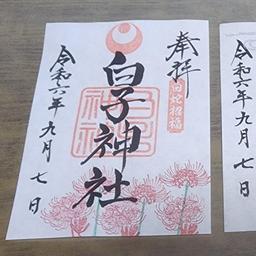 奉拝
白蛇招福
白子神社
令和六年九月七日
令和六年九月七日